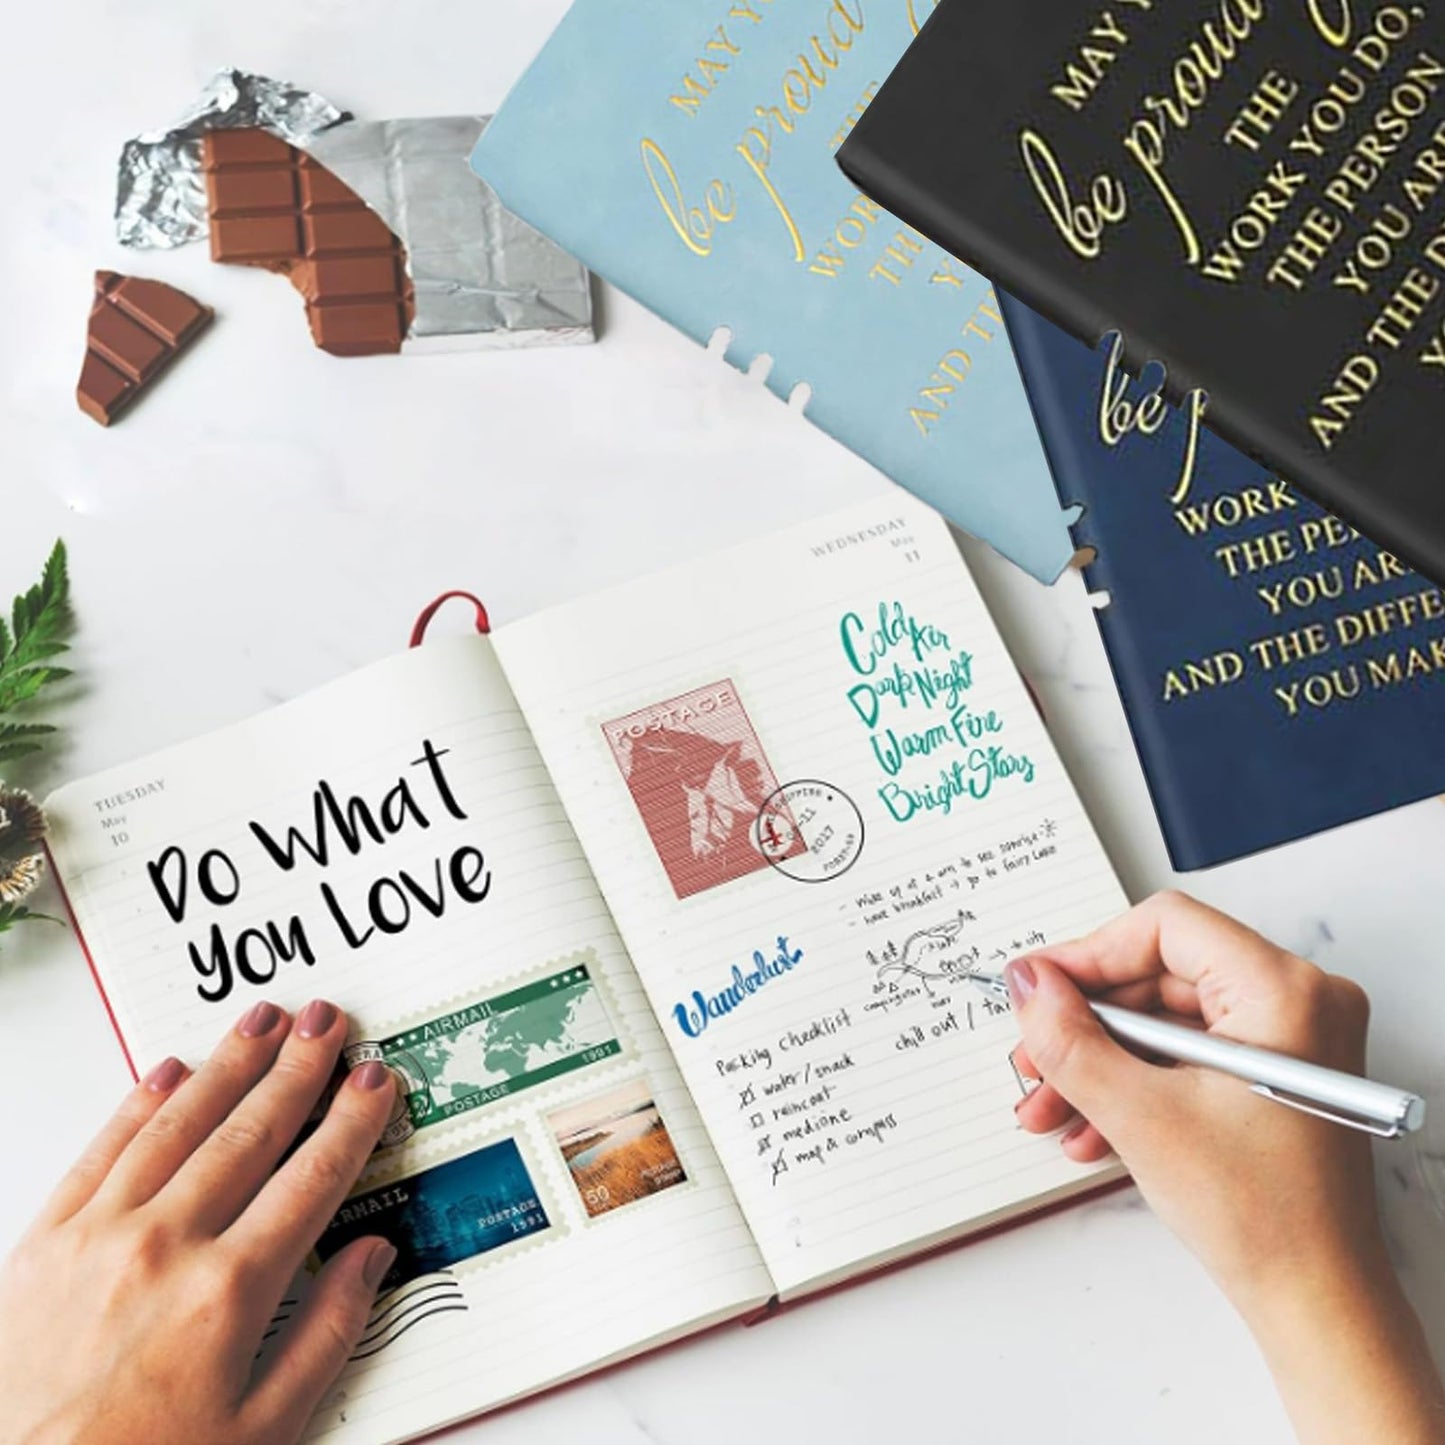 MAY
be proud
WORK
AND
MAY Y
be proud O
THE
WORK YOU DO,
THE PERSON
YOU ARE
AND THE D
be p
WORK
THE PE
YOU AR
AND THE DIFFE
YOU MAK
TUESDAY
May
10
Do What
You Love
AIRMAIL
1991
POSTAGE
IRMAIL
POSTAGE
1991
50
WEDNESDAY
May
11
POSTAGE
SHIPPING
2017
Cold Air
Dark Night
Warm Fire
Bright Stars
- Wake up at 4 am to see sunrise
- have breakfast → go to fairy lake
→ to city
Wanderlust
chill out / ta
Packing Checklist
water / snack
raincoat
medicine
map & compass